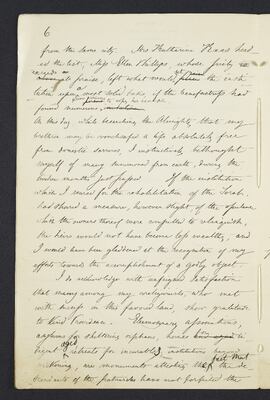 6
from the same city. Mrs Katharine Haas heed
ed the last, Miss Ellen Phillips, whose purity
exceeds praise, left what would the cash
taken upon a most solid basis, if the benefactress had
found numerous to epy his
On this day while beseeching the Almighty, that my
brethren may be vouchsafed a life absolutely free
from domestic sorrows, I instinctively bethought
myself of many summoned from earth, during the
twelve months just passed. If the institution
which I reared for the rehabilitation of the Torah,
had shared a measure, however slight, of the opulence
which the owners thereof were compelled to relinquish,
the heirs would not have become less wealthy, and
I would have been gladdened at the recognition of my
efforts towards the accomplishment of a godly object.
I do acknowledge with unfeigned satisfaction
that many among my coreligionists, who met
with success in this favored land, show gratitude
to kind Providence. Eleemosynary associations,
asylums for sheltering orphans, houses to
aged retreats for incurables, institutions
, are monuments attesting the fact that the de
scendants of the patriarchs have not forfeited the